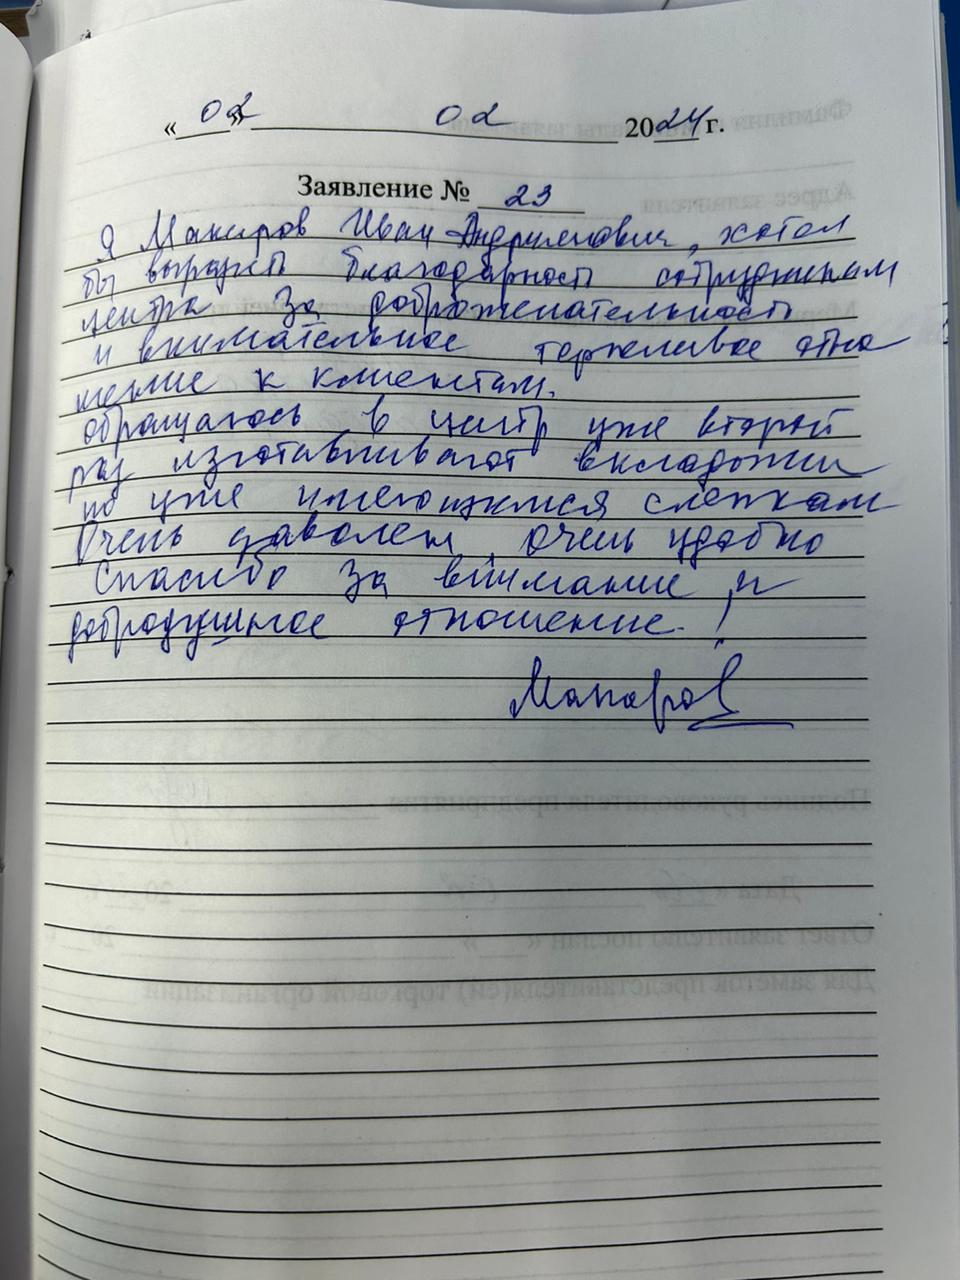 « 02 » 02 2024 г.
Заявление № 23
Я Макаров Иван Андриянович, хотел
бы выразить благодарность сотрудникам
центра за доброжелательность
и внимательное терпеливое отно
шение к клиентам.
обращаюсь в центр уже второй
раз изготавливают вкладыши
по уже имеющимся слепкам
Очень даволен, очень удобно
Спасибо за внимание и
добродушное отношение!
Макаров